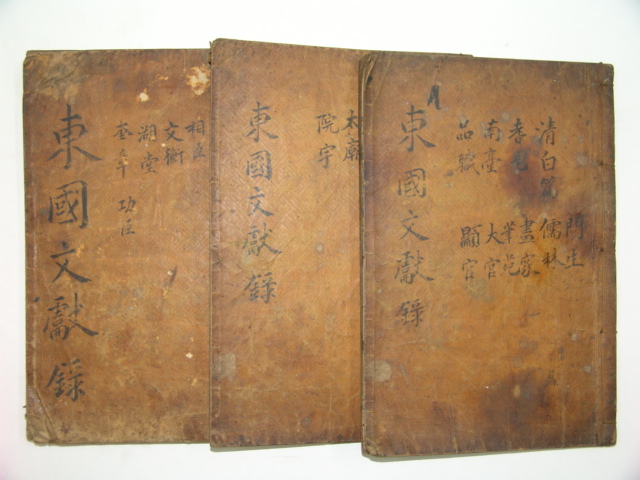 門生
清白篇 儒林
畫家
筆苑
南臺 大官
品職 顯官
東國文獻錄
太廟
院宇
東國文獻錄
相臣
文衡
湖堂
功臣
東國文獻錄